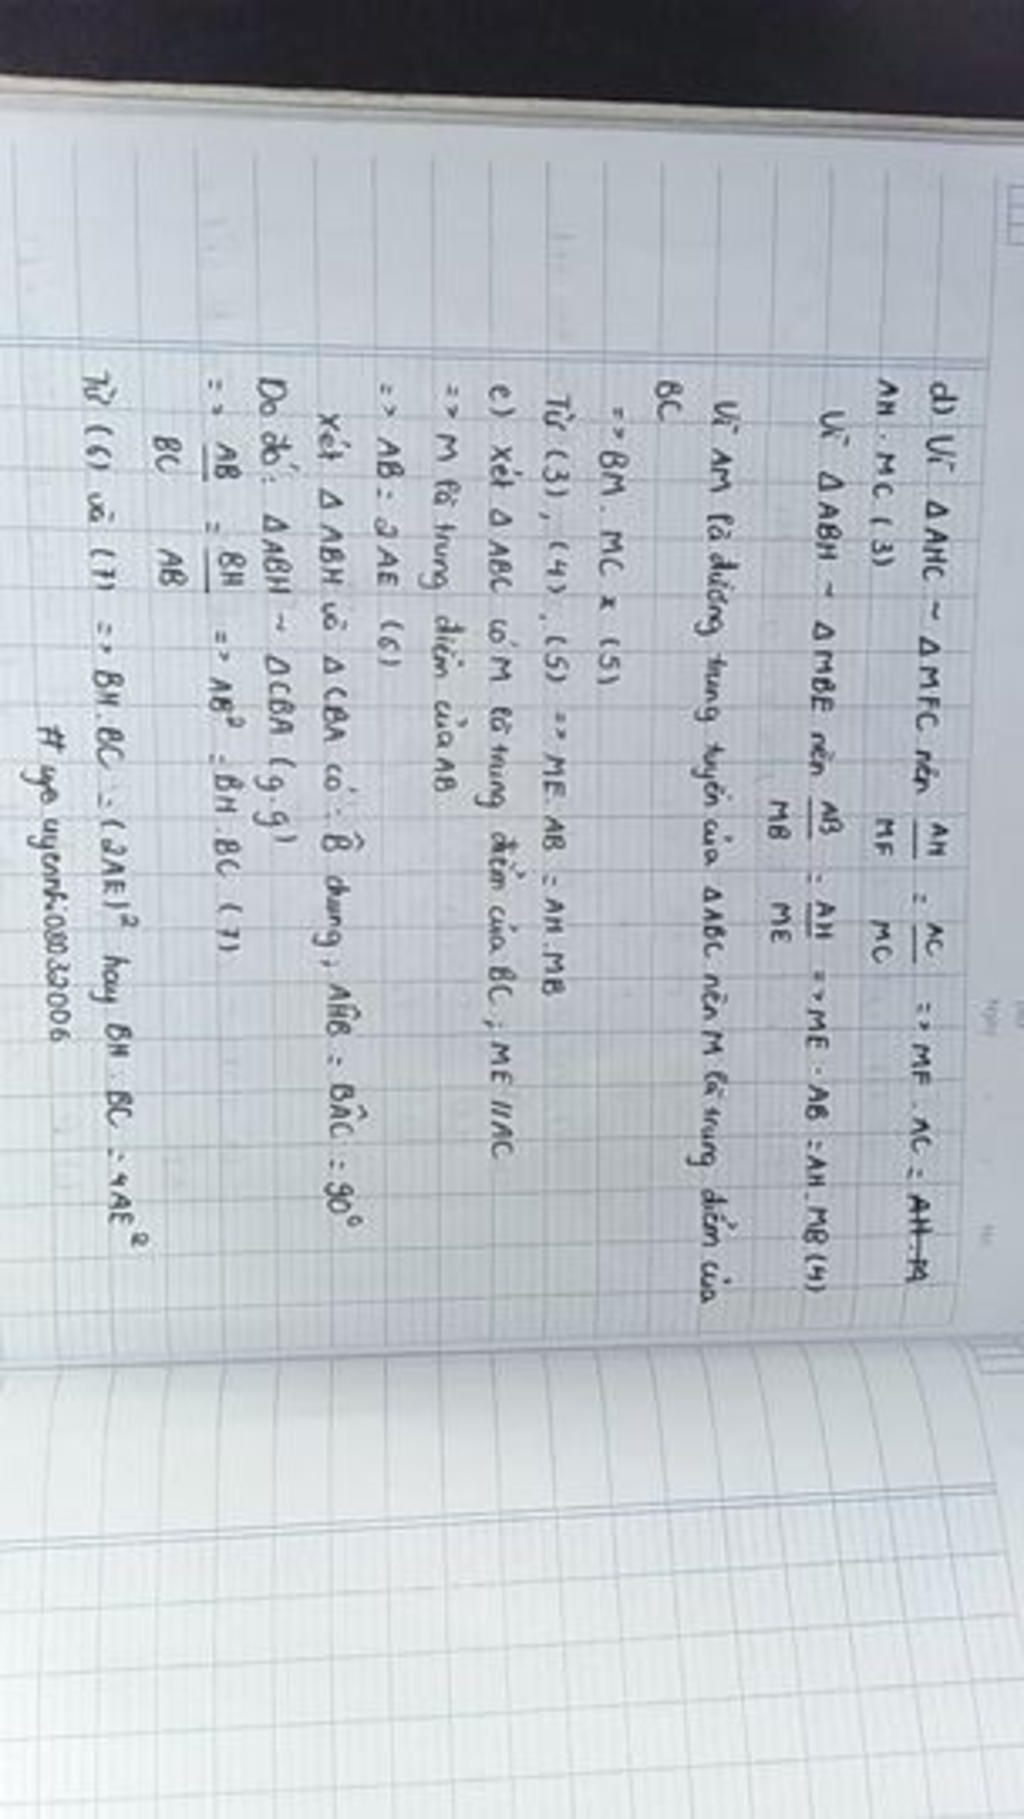 d) Vì Δ AHC ~ Δ MFC nên AH/MF = AC/MC => MF . AC = AH . M
AH . MC (3)
Vì Δ ABH ~ Δ MBE nên AB/MB = AH/ME => ME . AB = AH . MB (4)
Vì AM là đường trung tuyến của Δ ABC nên M là trung điểm của
BC
=> BM . MC x (5)
Từ (3), (4), (5) => ME . AB = AH . MB
e) Xét Δ ABC có M là trung điểm của BC ; ME // AC
=> M là trung điểm của AB
=> AB = 2AE (6)
Xét Δ ABH và Δ CBA có : B̂ chung, AĤB = BÂC = 90°
Do đó : Δ ABH ~ Δ CBA (g.g)
=> AB/BC = BH/AB => AB² = BH . BC (7)
Từ (6) và (7) => BH . BC = (2AE)² hay BH . BC = 4AE²